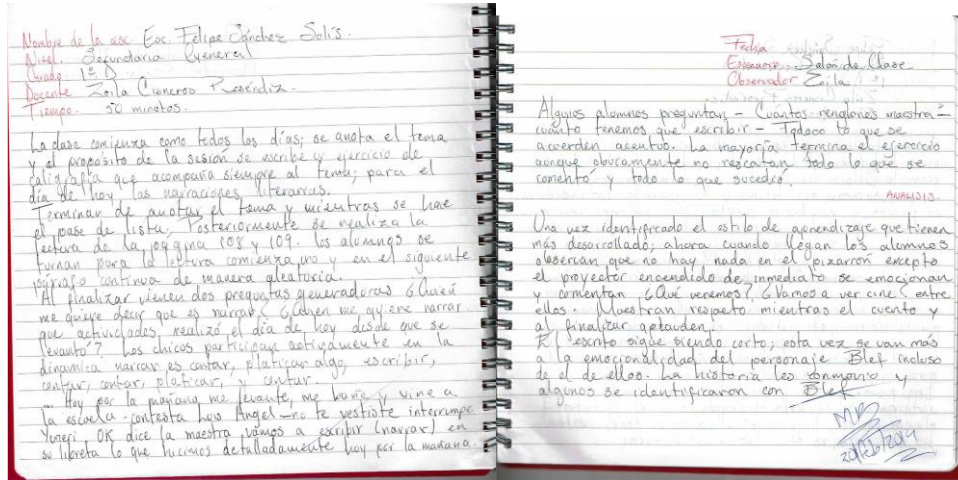 Nombre de la esc. Esc. Felipe Sánchez Solís.
Nivel. Secundaria General
Grado 1º D
Docente Zoila Cisneros Reséndiz.
Tiempo. 50 minutos.
La clase comienza como todos los días; se anota el tema
y el proposito de la sesión se escribe y ejercicio de
caligrafía que acompaña siempre al tema; para el
día de hoy las narraciones literarias.
Terminan de anotar el tema y mientras se hace
el pase de lista; Posteriormente se realiza la
lectura de la página 108 y 109. los alumnos se
turnan para la lectura comienza uno y en el siguiente
párrafo continua de manera aleatoria.
Al finalizar vienen dos preguntas generadoras ¿Quién
me quiere decir que es narrar? ¿Quien me quiere narrar
que actividades realizó el día de hoy desde que se
levantó? Los chicos participan activamente en la
dinamica narrar es contar, platicar algo, escribir,
contar, contar, platicar, y contar.
Hoy por la mañana me levante, me bañe y vine a
la escuela - contesta Luis Angel - no te vestiste interrumpe
Yuneri. OK dice la maestra vamos a escribir (narrar) en
su libreta lo que hicimos detalladamente hoy por la mañana.
Fecha
Escenario Salón de Clase
Observador Zoila
Algunos alumnos preguntan - Cuántos renglones maestra -
cuánto tenemos que escribir - Todooo lo que se
acuerden acentuo. La mayoría termina el ejercicio
aunque obviamente no rescatan todo lo que se
comentó y todo lo que sucedió.
ANALISIS
Una vez identificado el estilo de aprendizaje que tienen
más desarrollado; ahora cuando llegan los alumnos
observan que no hay nada en el pizarrón excepto
el proyector encendido de inmediato se emocionan
y comentan ¿Qué veremos? ¿Vamos a ver cine? entre
ellos. Muestran respeto mientras el cuento y
al finalizar aplauden.
El escrito sigue siendo corto; esta vez se van más
a la emocionalidad del personaje Blef incluso
de el de ellos. La historia les conmovio y
algunos se identificaron con Blef
MB
20/Feb/2014